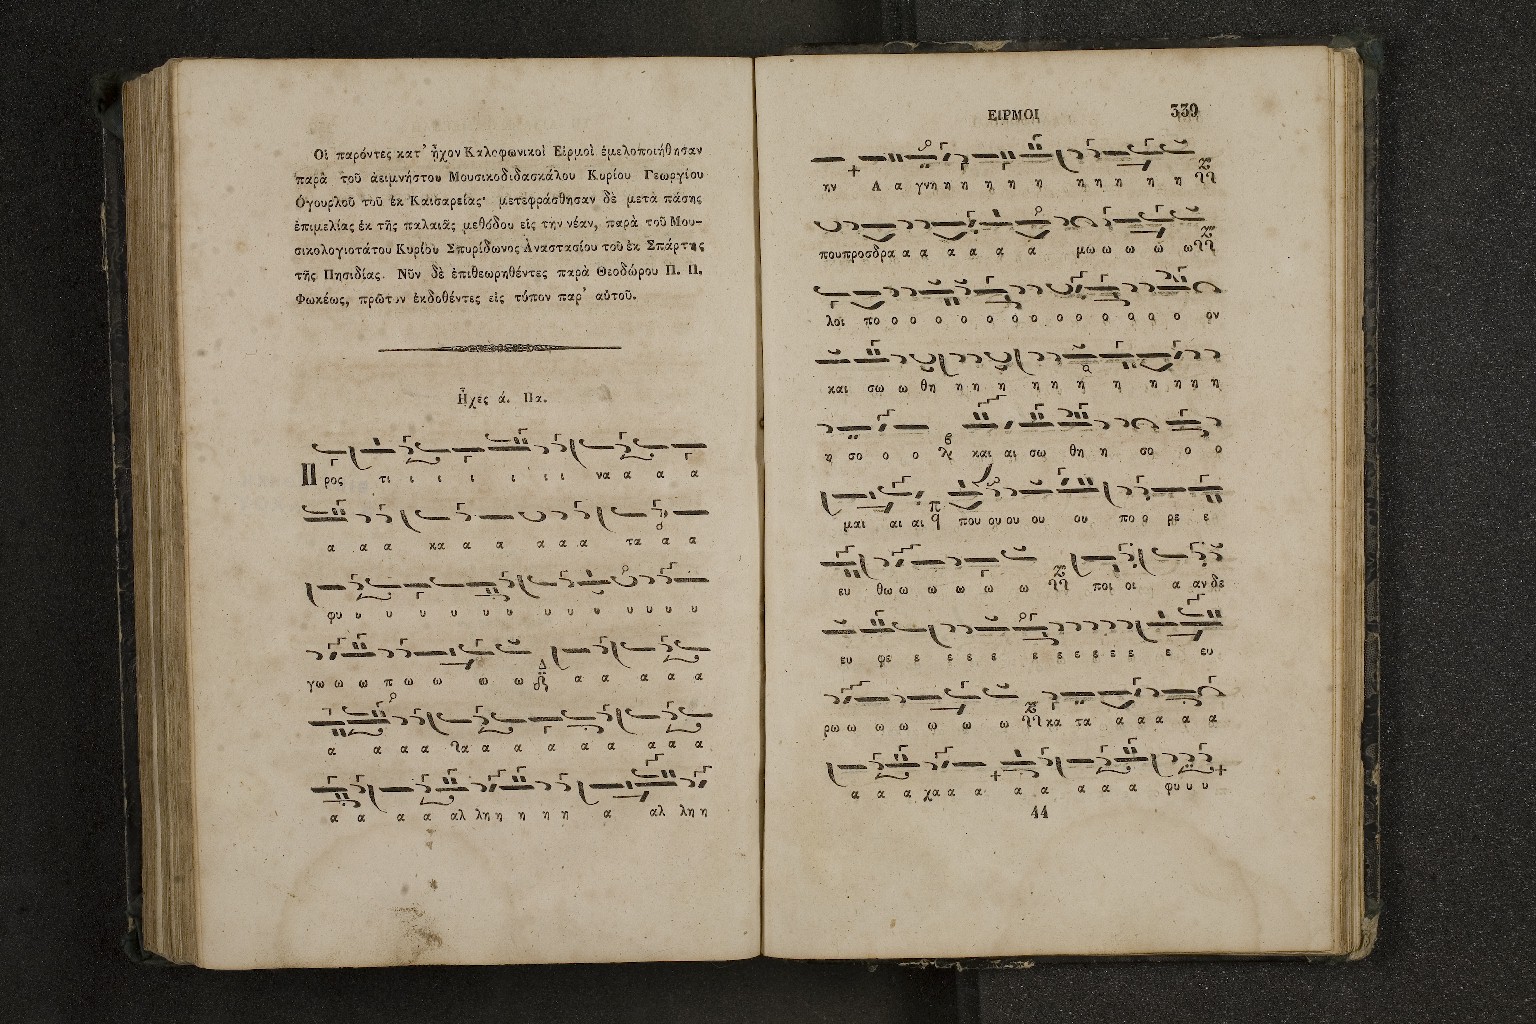 Οἱ παρόντες κατ' ἦχον Καλοφωνικοὶ Εἱρμοὶ ἐμελοποιήθησαν
παρὰ τοῦ ἀειμνήστου Μουσικοδιδασκάλου Κυρίου Γεωργίου
Ὀγουρλοῦ τοῦ ἐκ Καισαρείας· μετεφράσθησαν δὲ μετὰ πάσης
ἐπιμελίας ἐκ τῆς παλαιᾶς μεθόδου εἰς τὴν νέαν, παρὰ τοῦ Μου-
σικολογιοτάτου Κυρίου Σπυρίδωνος Ἀναστασίου τοῦ ἐκ Σπάρτης
τῆς Πησιδίας. Νῦν δὲ ἐπιθεωρηθέντες παρὰ Θεοδώρου Π. Π.
Φωκέως, πρῶτον ἐκδοθέντες εἰς τύπον παρ' αὐτοῦ.
Ἦχος ά. Πα.
Π ρος τι ι ι ι ι ι ι να α α α
α α α κα α α α α α τα α α
φυ υ υ υ υ υ υ υ υ υ υ υ υ
γω ω ω π ω ω ω ω α α α α α
α α α α λα α α α α α α α α
α α α α αλ λη η η η η α αλ λη η
ΕΙΡΜΟΙ 339
ην Α α γνη η η η η η η η η η η
πουπροσδρα α α α α α α μω ω ω ω ω
λοι πο ο ο ο ο ο ο ο ο ο ο ο ο ον
και σω ω θη η η η η η η η η η η η
η σο ο ο και αι σω θη η σο ο ο
μαι αι αι που ου ου ου ου πο ρ ρε ε
ευ θω ω ω ω ω ω ποι οι α αν δε
ευ φε ε ε ε ε ε ε ε ε ε ε ευ
ρω ω ω ω ω ω ω κα τα α α α α α
α α α χα α α α α α α α φυ υ υ
44